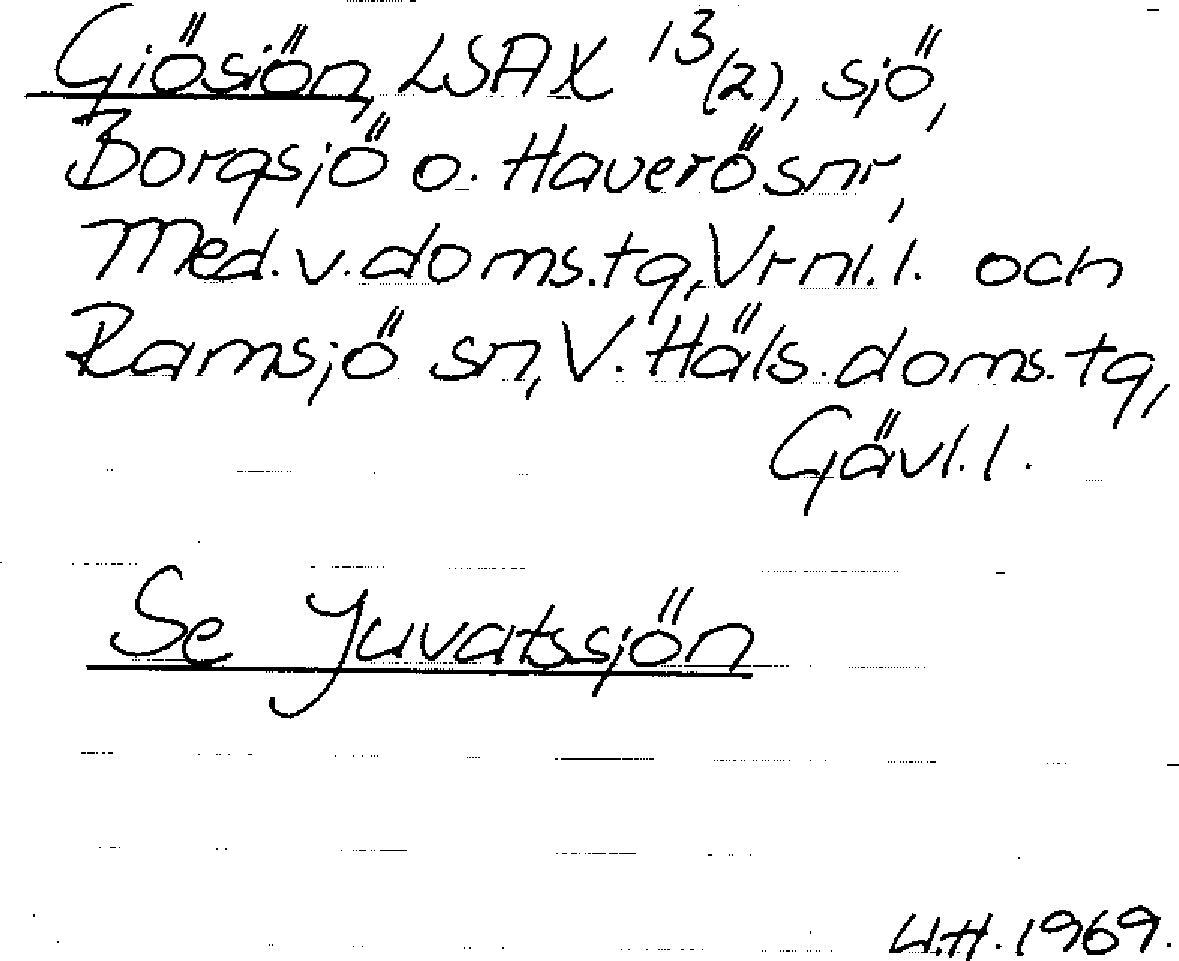 Giösiön, LSA X 13(2), sjö,
Borgsjö o. Haverö snr,
Med. v. doms. tg, Vrnl. l. och
Ramsjö sn, V. Häls. doms. tg,
Gävl. l.
Se Juvatssjön
U.H. 1969.